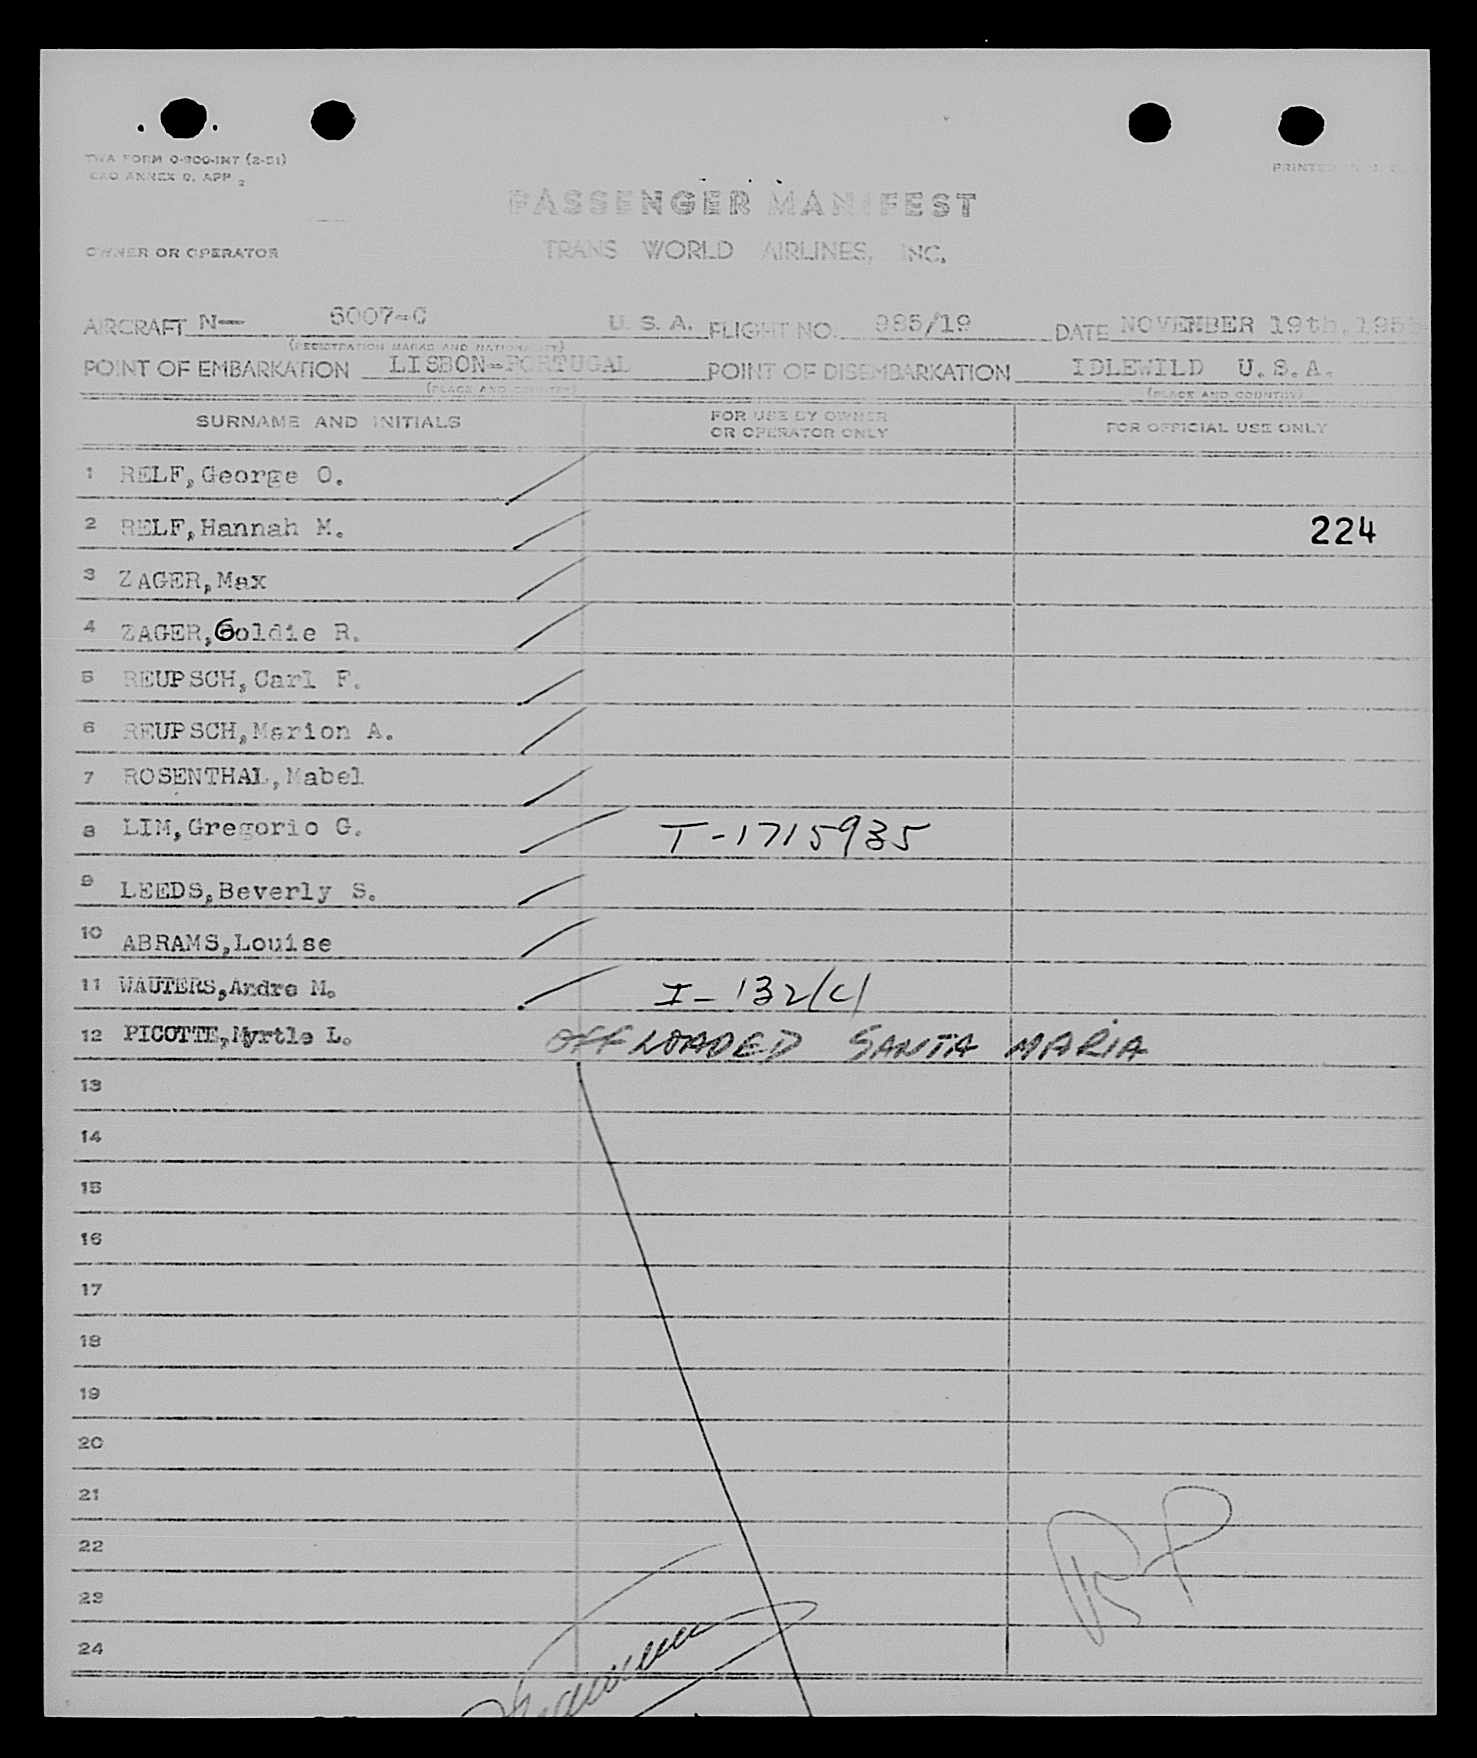 TWA FORM 0-900-INT (2-51)
ICAO ANNEX 9, APP 2
PRINTED IN U.S.
PASSENGER MANIFEST
OWNER OR OPERATOR TRANS WORLD AIRLINES, INC.
AIRCRAFT N— 6007-C U. S. A. FLIGHT NO. 985/19 DATE NOVEMBER 19th, 195
(REGISTRATION MARKS AND NATIONALITY)
POINT OF EMBARKATION LISBON-PORTUGAL POINT OF DISEMBARKATION IDLEWILD U. S. A.
(PLACE AND COUNTRY) (PLACE AND COUNTRY)
SURNAME AND INITIALS FOR USE BY OWNER OR OPERATOR ONLY FOR OFFICIAL USE ONLY
1 RELF, George O.
2 RELF, Hannah M. 224
3 ZAGER, Max
4 ZAGER, Goldie R.
5 REUPSCH, Carl F.
6 REUPSCH, Marion A.
7 ROSENTHAL, Mabel
8 LIM, Gregorio G. T-1715935
9 LEEDS, Beverly S.
10 ABRAMS, Louise
11 WAUTERS, Andre M. I-132/C/
12 PICOTTE, Myrtle L. OFFLOADED SANTA MARIA
13
14
15
16
17
18
19
20
21
22
23
24